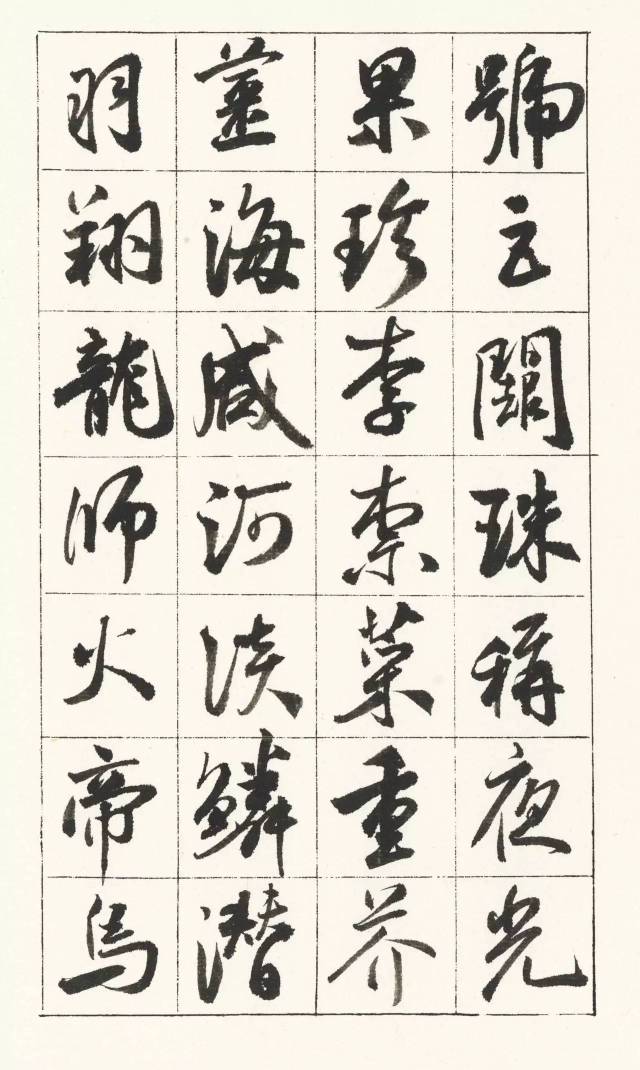 號巨闕珠稱夜光
果珍李柰菜重芥
薑海咸河淡鱗潛
羽翔龍師火帝鳥